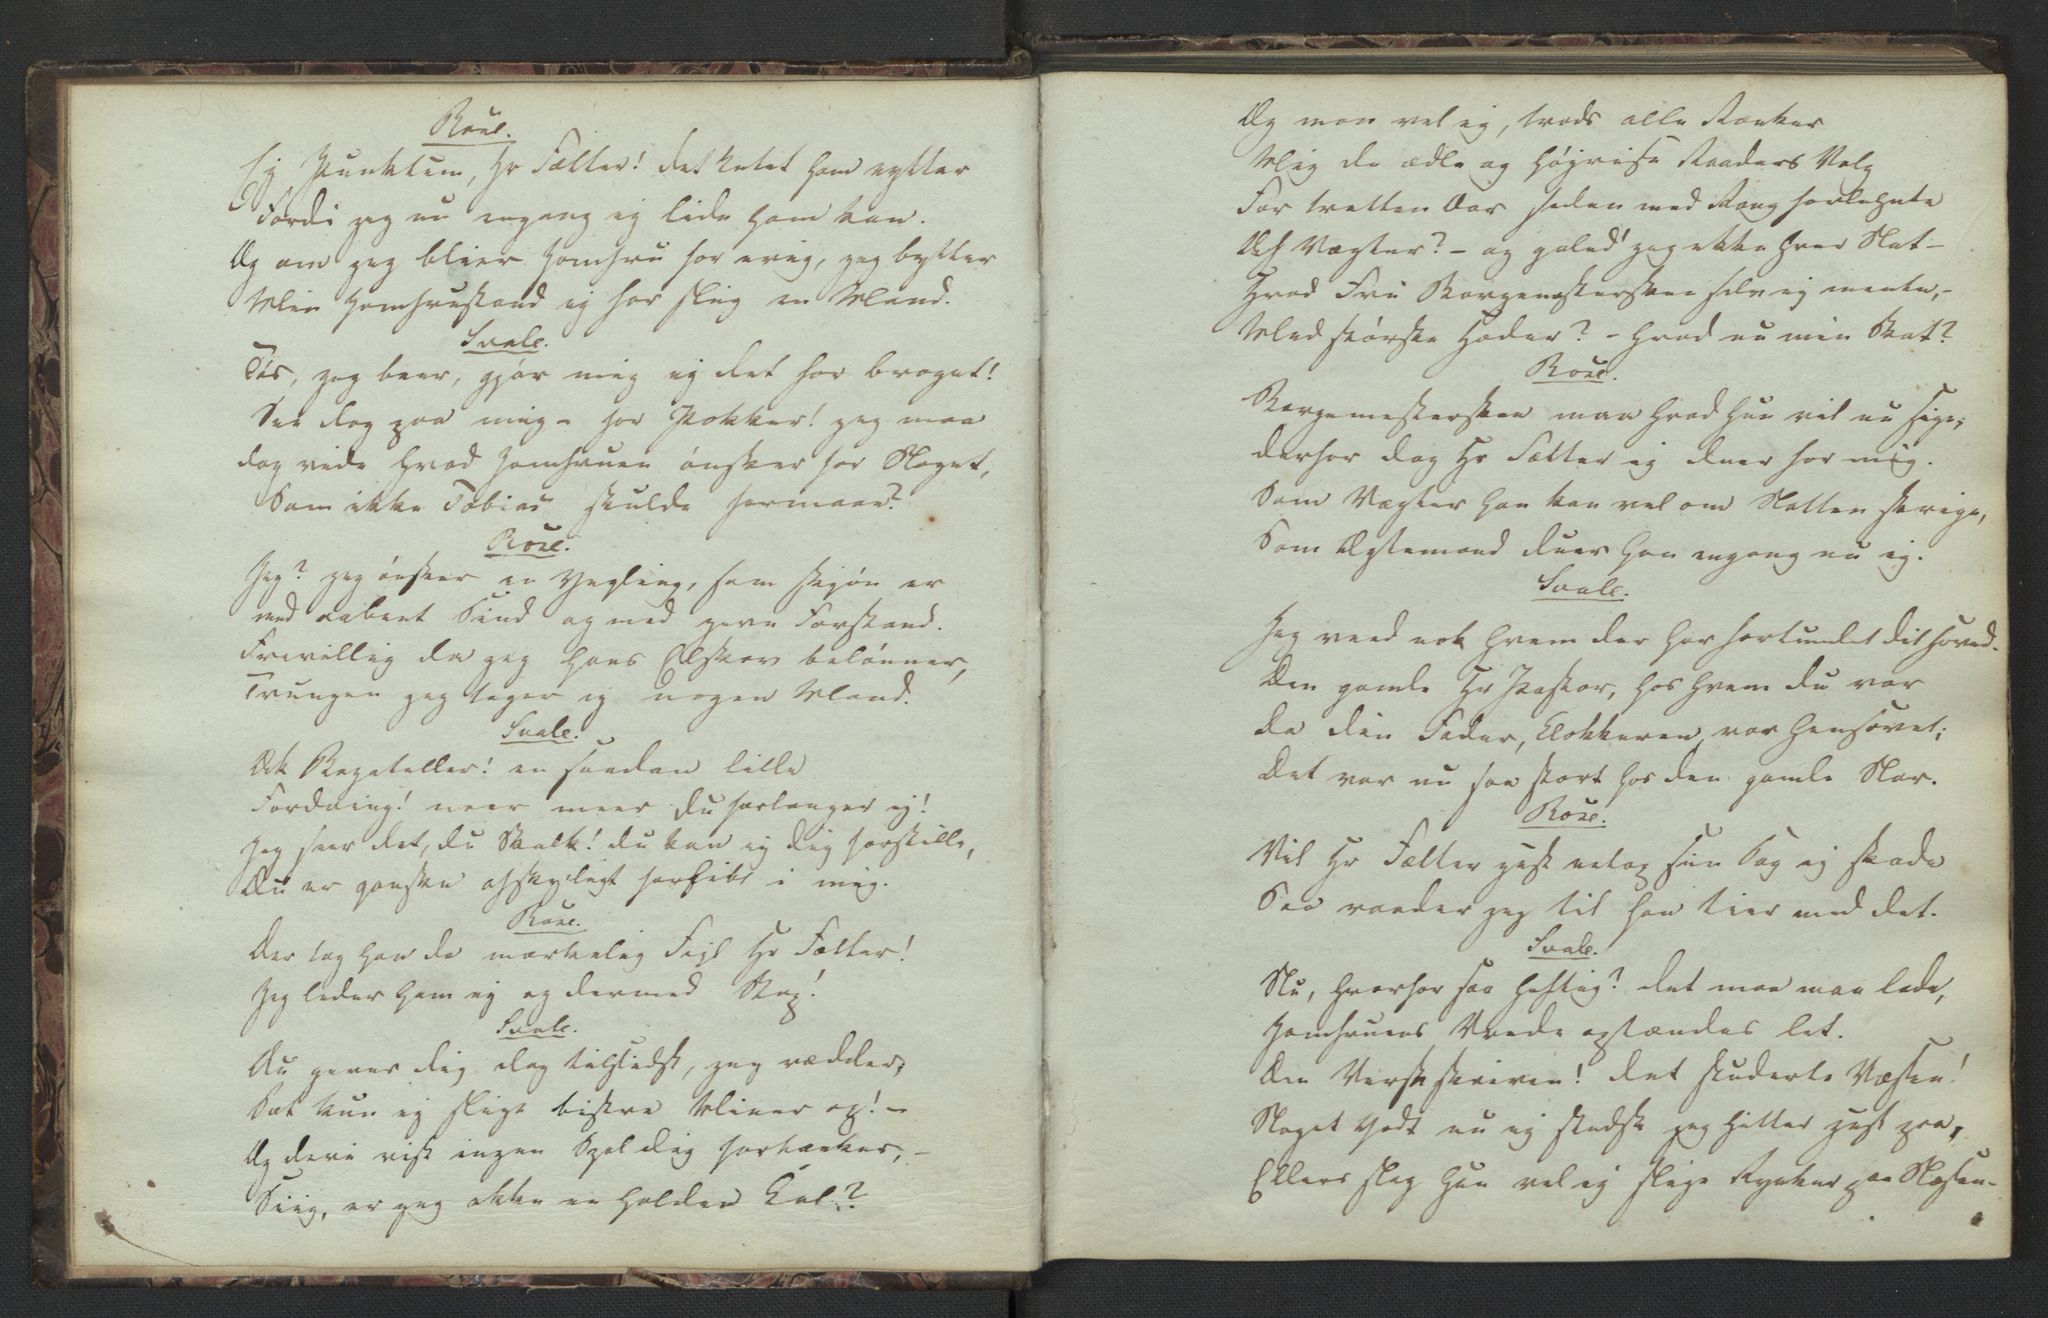 Rose.
Ej Punktum, Hr Fætter! det Intet ham nytter
Fordi jeg nu engang ej lide ham kan.
Og om jeg blier Jomfru for evig, jeg bytter
Min Jomfrustand ej for slig en Mand.
Svale.
Tøs, jeg beer, gjør mig ej det for broget!
See dog paa mig – for Pokker! jeg maa
dog vide hvad Jomfruen ønsker for Noget,
Som ikke Tobias skulde formaae?
Rose.
Jeg? jeg ønsker en Yngling, som skjøn er
med aabent Sind og med giævn Forstand.
Frivillig da jeg hans Elskov belønner,
Tvungen jeg tager ej nogen Mand.
Svale.
Ach Bagateller! en saadan lille
Fordring! neer meer du forlanger ej!
Jeg seer det, du Skalk! du kan ej dig forstille,
Du er ganske afskyligt forlibt i mig.
Rose.
Der tog han da mærkelig Fejl Hr Fætter!
Jeg lider ham ej og dermed Stop!
Svale.
Du giver dig dog tilsidst, jeg vædder,
Sæt kun ej slige bistre Miner op! –
Og deri vist ingen Sjæl dig fortænker, –
Siig, er jeg ikke en holden Karl?
Og mon vel ej, trods alle Rænker
Mig de ædle og højvise Raaders Valg
For tretten Aar siden med Rang forlehnte
Af Vægter? – og galed' jeg ikke hver Nat –
Hvad Fru Borgemesterskeen selv ej meente, –
Med stærke Hoder? – hvad nu min Skat?
Rose.
Borgemesterskeen maa hvad hun vil nu sige;
derfor dog Hr Fætter ej duer for mig.
Som Vægter han kan vel om Natten skrige,
Som Ægtemand duer han engang nu ej.
Svale.
Jeg veed nok hvem der har fortumlet dit Hoved.
Den gamle Hr Pastor, hos hvem du var
da din Fader, Klokkeren, var hensovet;
Det var nu saa stort hos den gamle Nar.
Rose.
Vil Hr Fætter just netop sin Sag ej skade
Saa raader jeg til han tier med det.
Svale.
Nu, hvorfor saa heftig? det maa man lade,
Jomfruens Vrede optændes let.
Den Versskriven! det studerte Væsen!
Noget Godt nu ej stedse jeg hitter just paa,
Ellers slog hun vel ej slige Rynker paa Næsen –